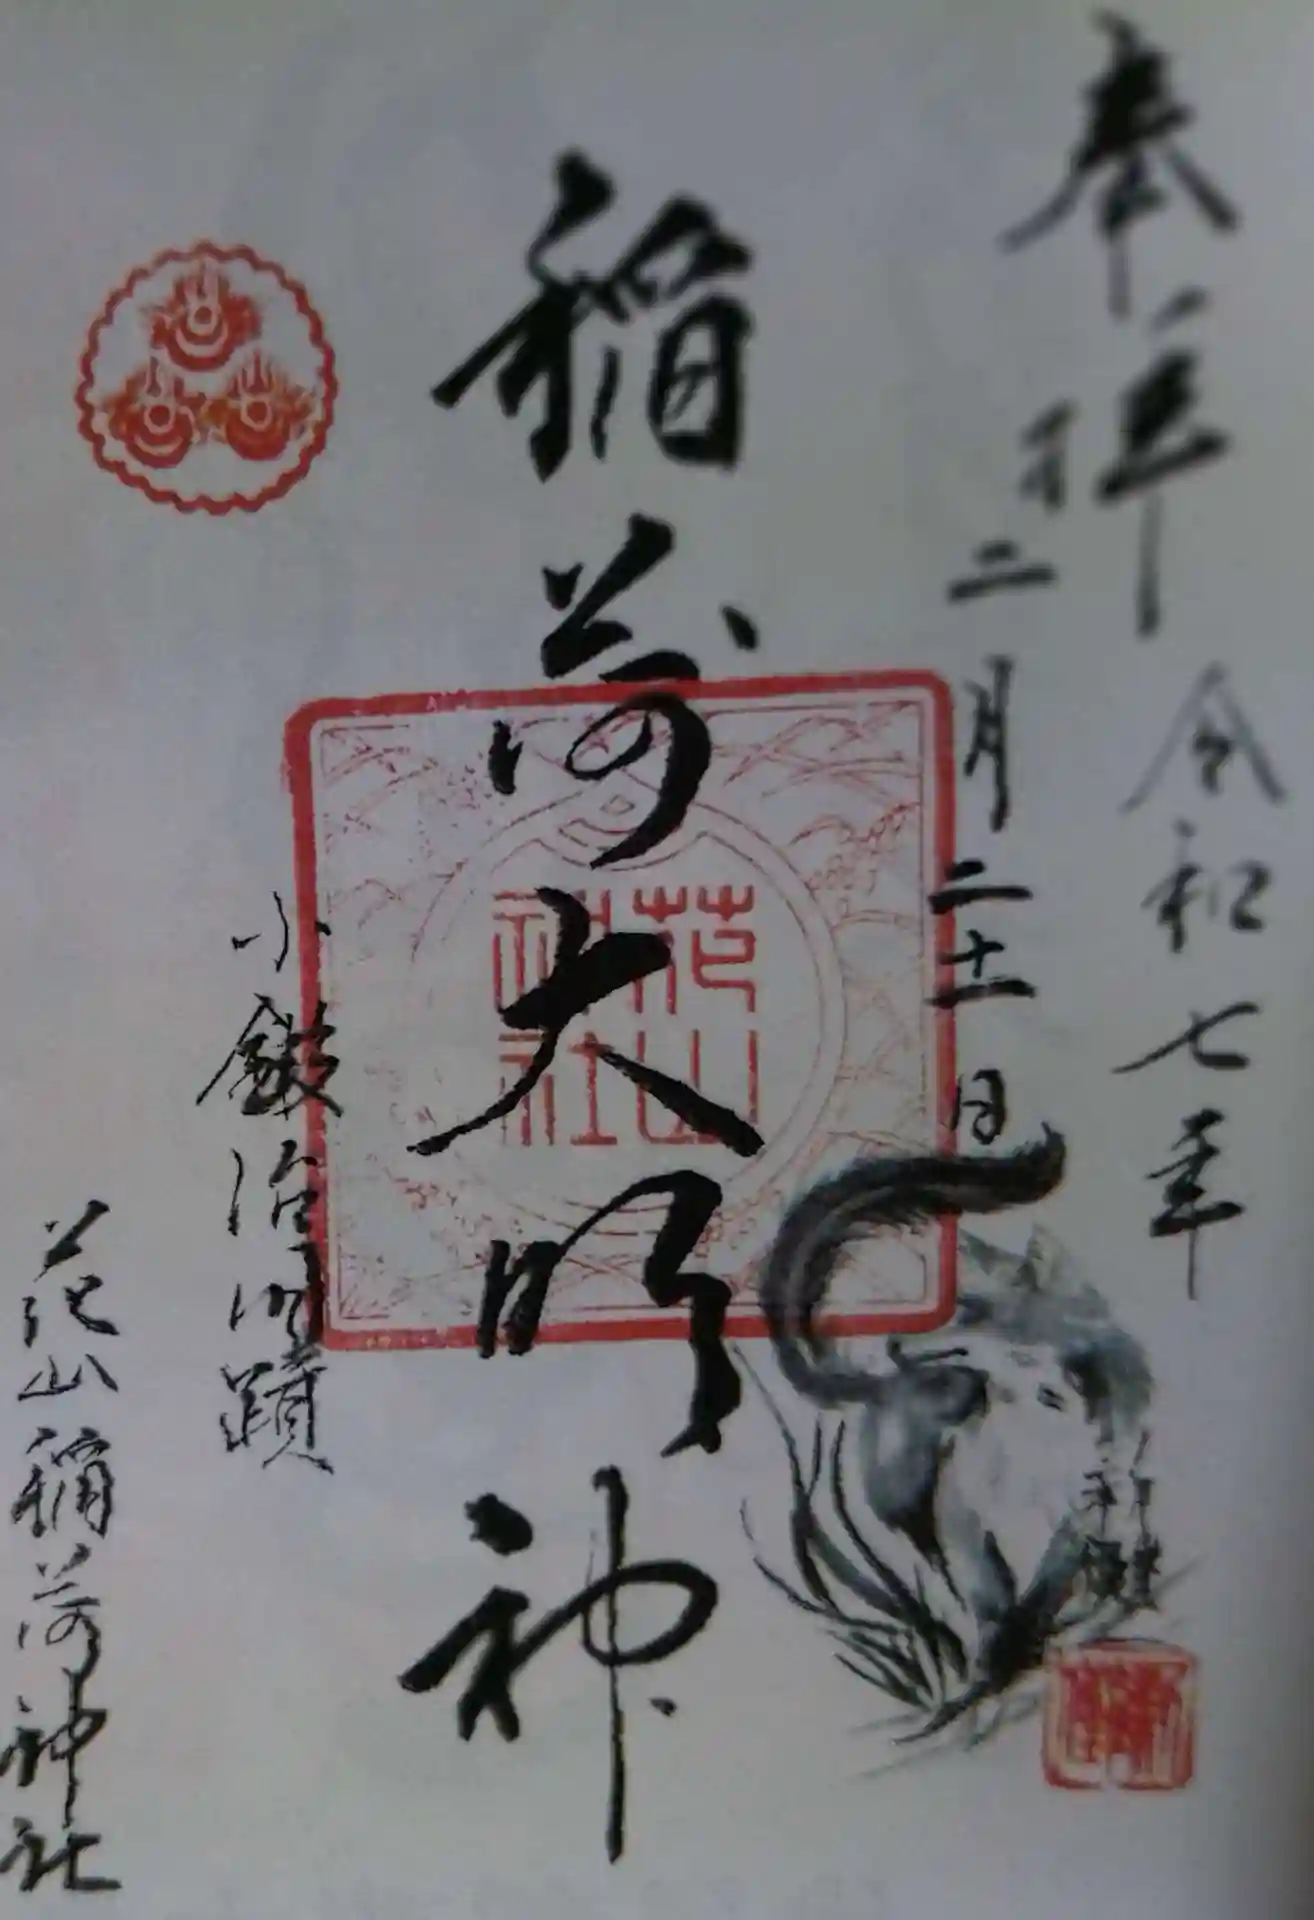 奉拝 令和七年
十二月二十一日
稲荷大明神
花山
神社
小鍛治旧蹟
花山稲荷神社